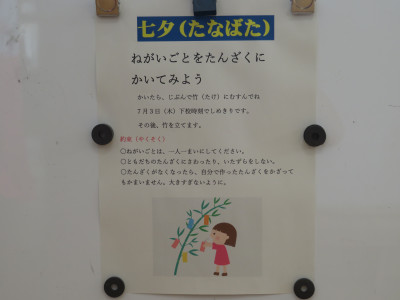 七夕（たなばた）
ねがいごとをたんざくに
かいてみよう
かいたら、じぶんで竹（たけ）にむすんでね
７月３日（木）下校時刻でしめきりです。
その後、竹を立てます。
約束（やくそく）
○ねがいごとは、一人一まいにしてください。
○ともだちのたんざくにさわったり、いたずらをしない。
○たんざくがなくなったら、自分で作ったたんざくをかざって
もかまいません。大きすぎないように。